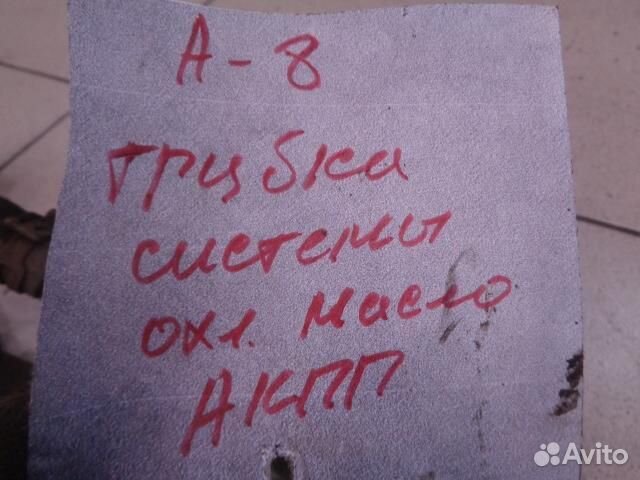 А-8
трубка
системы
охл. масло
АКПП
Avito